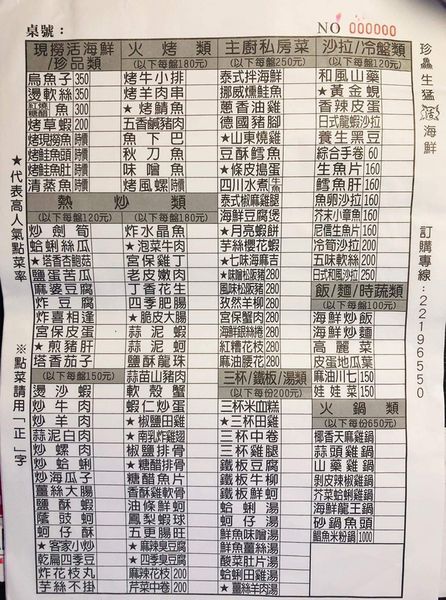 桌號：
NO 000000
珍鱻生猛活海鮮
訂購專線:22196550
★代表高人氣點菜率
※點菜請用「正」字
現撈活海鮮/珍品類
烏魚子 350
燙軟絲 350
紅燒/糖醋 魚 300
烤草蝦 200
烤現撈魚 時價
烤鮭魚頭 時價
烤鮭魚肚 時價
清蒸魚 時價
熱炒類
(以下每盤120元)
炒劍筍
蛤蜊絲瓜
★塔香杏鮑菇
鹽蛋苦瓜
麻婆豆腐
炸豆腐
炸喜相逢
宮保皮蛋
★煎豬肝
塔香茄子
(以下每盤150元)
燙沙蝦
炒牛肉
炒羊肉
蒜泥白肉
炒螺肉
炒蛤蜊
炒海瓜子
薑絲大腸
鹽酥蝦
蔭豉蚵
蚵仔酥
★客家小炒
乾扁四季豆
炸花枝丸
芋絲不掛
火烤類
(以下每盤180元)
烤牛小排
烤羊肉串
★烤鯖魚
五香鹹豬肉
魚下巴
秋刀魚
味噌魚
烤風螺 時價
(以下每盤180元)
炸水晶魚
★泡菜牛肉
宮保雞丁
老皮嫩肉
丁香花生
四季肥腸
★脆皮大腸
蒜泥蝦
蒜泥蚵
鹽酥龍珠
蒜苗山豬肉
軟殼蟹
蝦仁炒蛋
★椒鹽田雞
★南乳炸雞翅
椒鹽排骨
★糖醋排骨
糖醋魚片
香酥雞軟骨
油條鮮蚵
鳳梨蝦球
五更腸旺
★麻辣臭豆腐
★四季臭豆腐
麻辣花枝 200
芹菜中卷 200
主廚私房菜
(以下每盤250元)
泰式拌海鮮
挪威燻鮭魚
蔥香油雞
德國豬腳
★山東燒雞
豆酥鱈魚
★條皮搗蛋
四川水煮牛
泰式椒麻雞腿
海鮮豆腐煲
★月亮蝦餅
芋絲櫻花蝦
★七味海麻吉
★味噌松阪豬 200
風味松阪豬 200
孜然羊柳 200
宮保蟹肉 200
海鮮銀絲捲 200
紅糟花枝 200
麻油腰花 200
三杯/鐵板/湯類
(以下每份200元)
三杯米血糕
★三杯田雞
三杯中卷
三杯雞腿
鐵板豆腐
鐵板牛柳
鐵板鮮蚵
蛤蜊湯
蚵仔湯
鮮魚味噌湯
鮮魚薑絲湯
酸菜肚片湯
蛤蜊田雞湯
★薑絲羊肉湯
沙拉/冷盤類
(以下每盤120元)
和風山藥
★黃金蜆
香辣皮蛋
日式龍蝦沙拉
養生黑豆
綜合手卷 60
生魚片 160
鱈魚肝 160
魚卵沙拉 160
芥末小章魚 160
尼信生魚片 160
冷筍沙拉 200
五味軟絲 200
日式和風沙拉 250
飯/麵/時蔬類
(以下每盤100元)
海鮮炒飯
海鮮炒麵
高麗菜
皮蛋地瓜葉
麻油川七 150
娃娃菜 150
火鍋類
(以下每份650元)
椰香天麻雞鍋
蒜頭雞鍋
山藥雞鍋
剝皮辣椒雞鍋
芥菜蛤蜊雞鍋
海鮮龍王鍋
砂鍋魚頭
鯧魚米粉鍋 1000